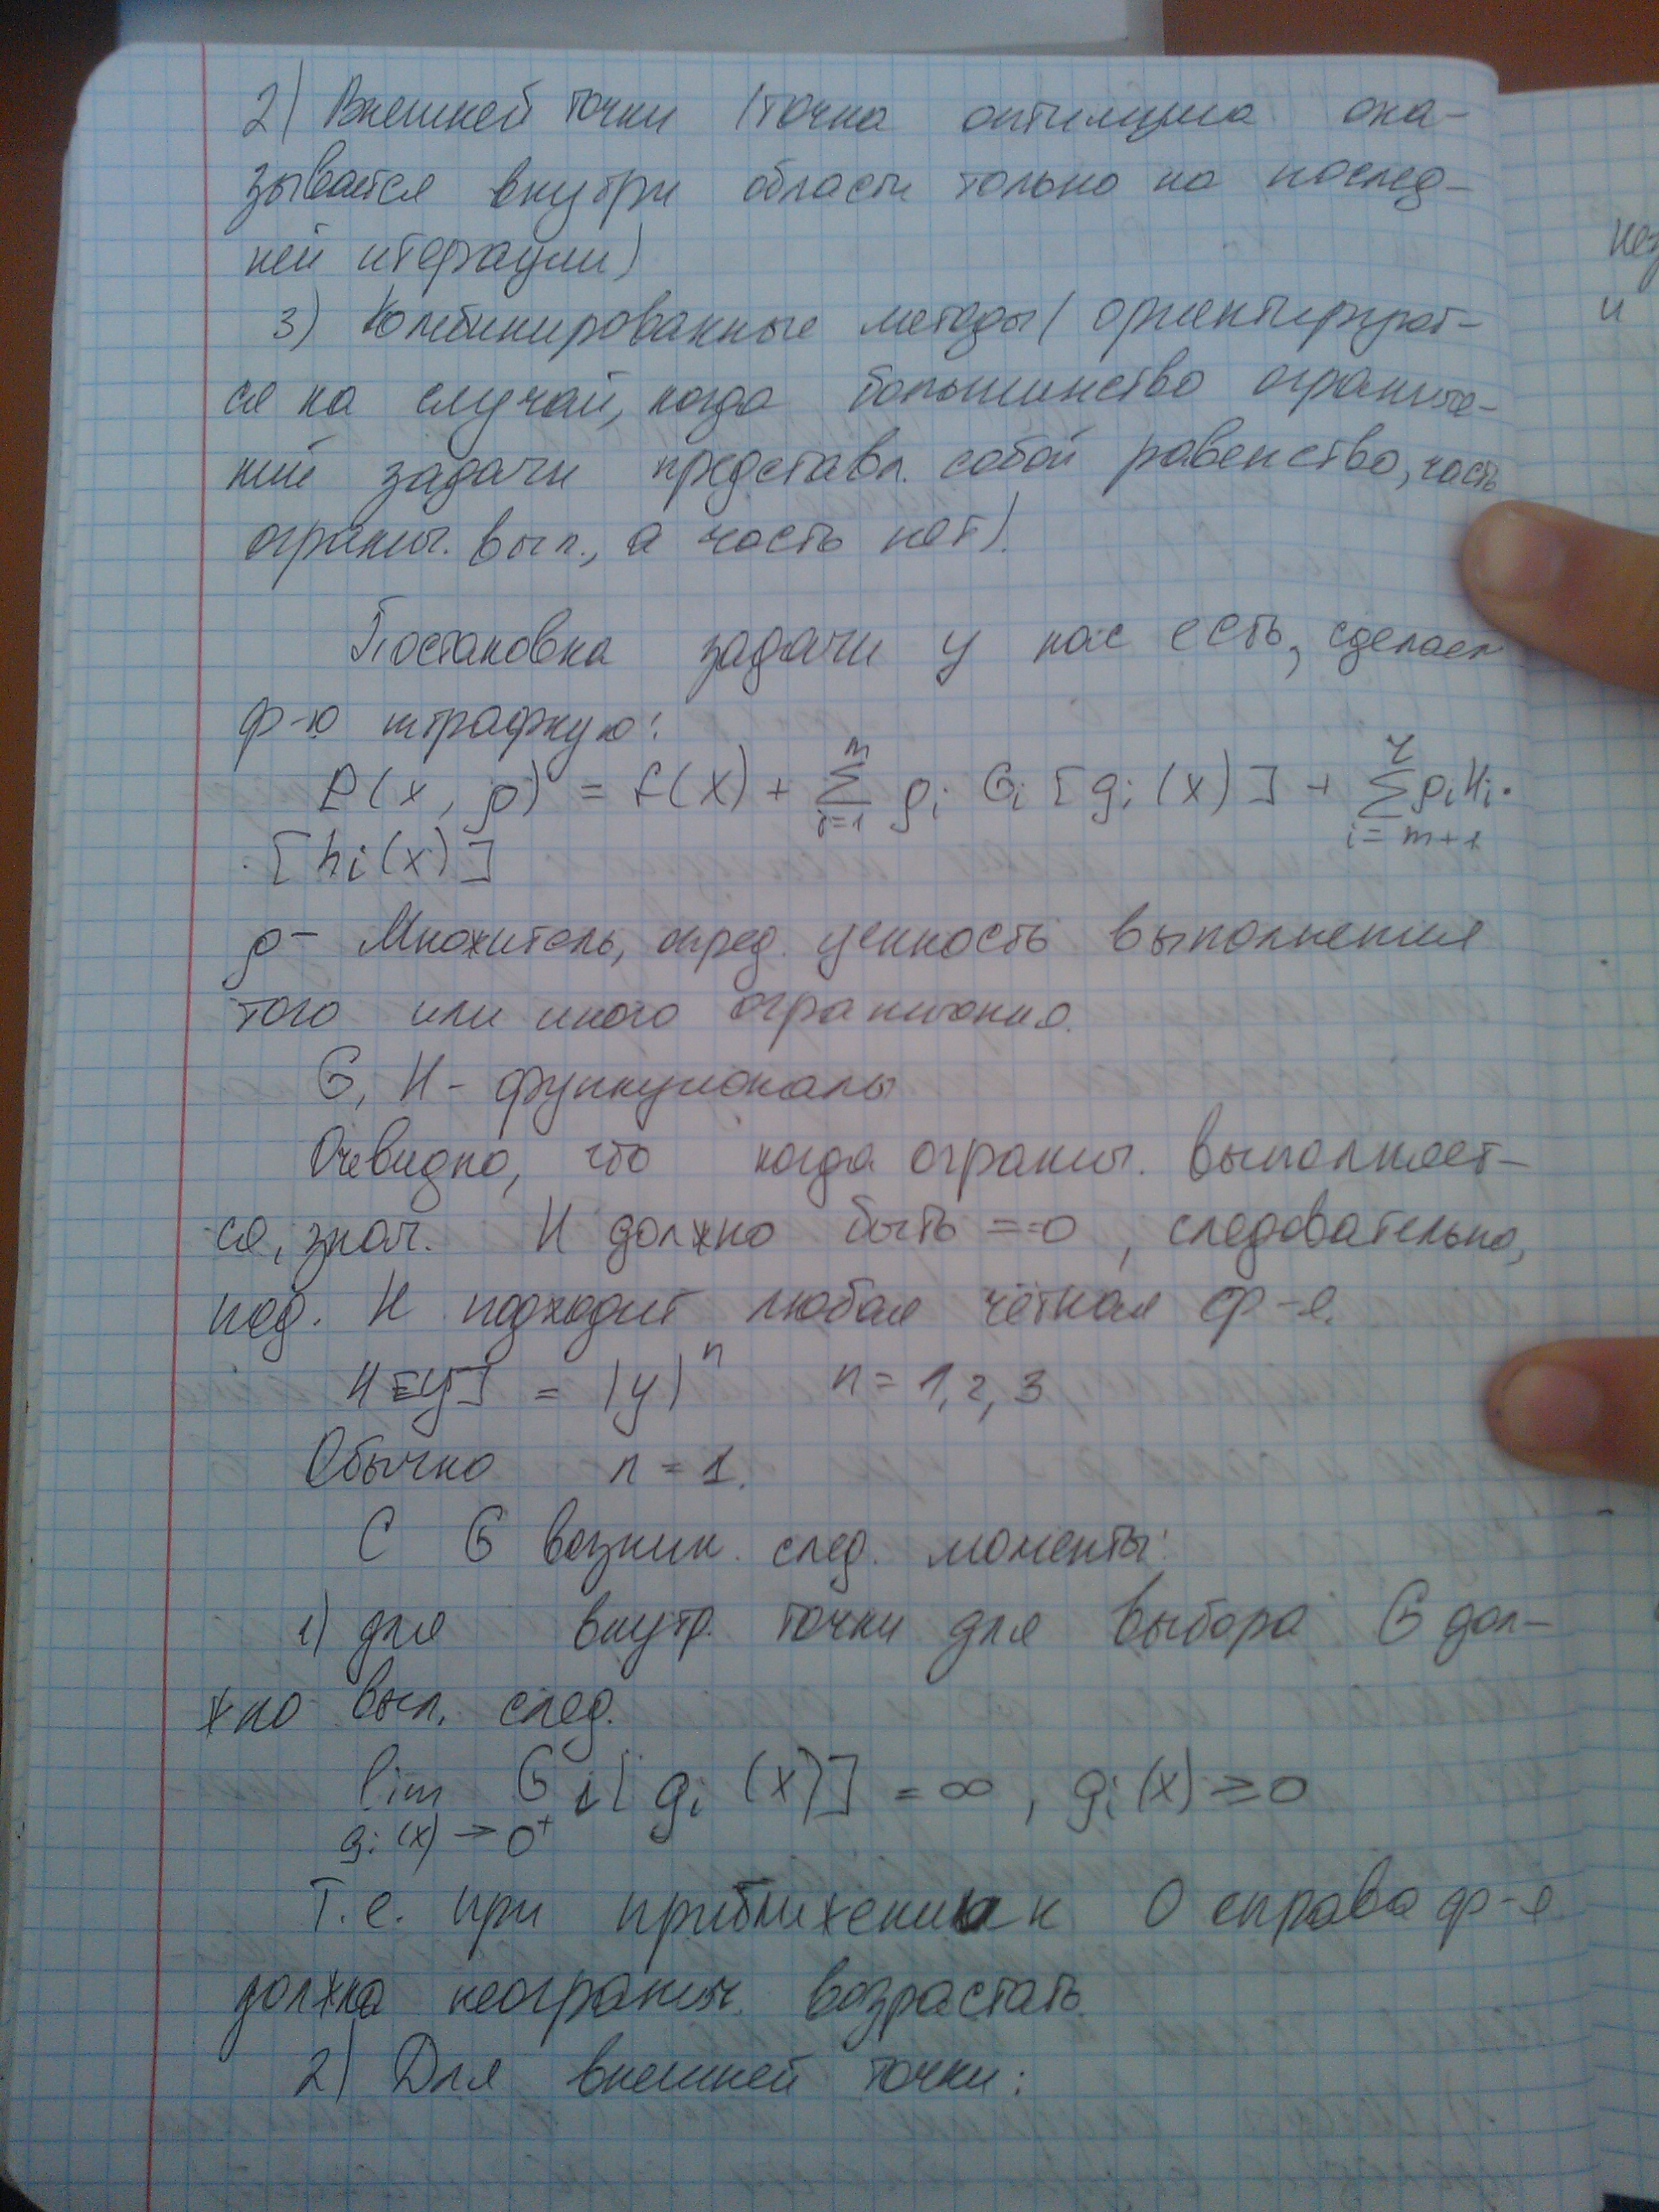 2) Внешней точки (точка оптимума ока-
зывается внутри области только на послед-
ней итерации)
3) Комбинированные методы (ориентируют-
ся на случай, когда большинство ограниче-
ний задачи представл. собой равенство, часть
огранич. вып., а часть нет).
Постановка задачи у нас есть, сделаем
ф-ю штрафную:
P(x, ρ) = f(x) + ∑ᵢ₌₁ᵐ ρᵢ Gᵢ [gᵢ(x)] + ∑ᵢ₌ₘ₊₁ʳ ρᵢ Hᵢ ·
· [hᵢ(x)]
ρ - Множитель, опред. ценность выполнения
того или иного ограничения.
G, H - функционалы
Очевидно, что когда огранич. выполняет-
ся, знач. H должно быть == 0, следовательно,
под. H подходит любая чётная ф-я.
H[y] = |y|ⁿ n = 1, 2, 3
Обычно n = 1.
С G возник. след. моменты:
1) для внутр. точки для выбора G дол-
жно вып. след.
lim Gᵢ[gᵢ(x)] = ∞, gᵢ(x) ≥ 0
gᵢ(x) → 0⁺
Т.е. при приближении к 0 справа ф-я
должна неогранич. возрастать.
2) Для внешней точки: